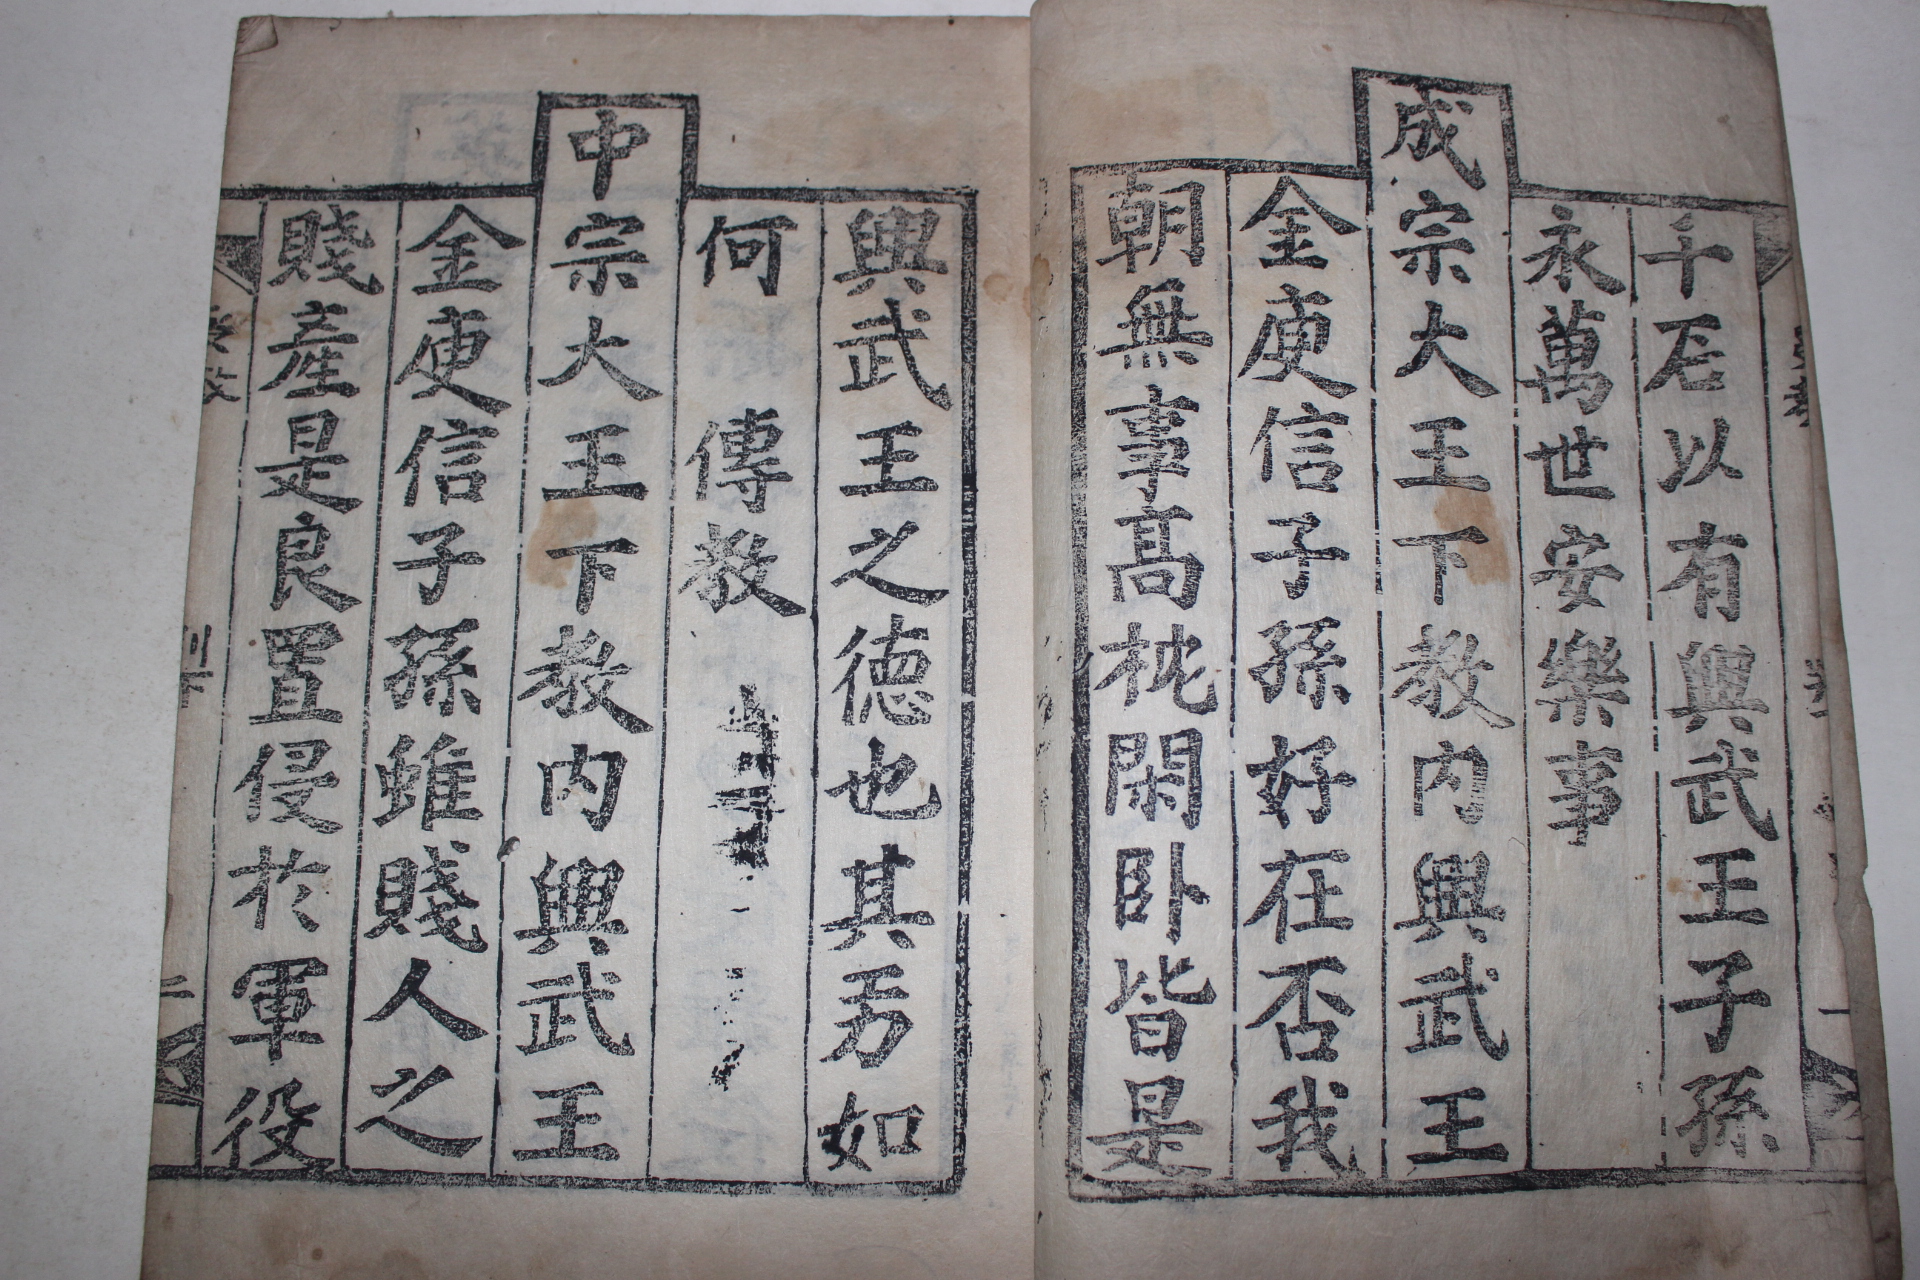 千石以有興武王子孫
永萬世安樂事
成宗大王下教内興武王
金庾信子孫好在否我
朝無事高枕閑卧皆是
興武王之德也其功如
何 傳教
中宗大王下教内興武王
金庾信子孫雖賤人之
賤産是良置侵於軍役